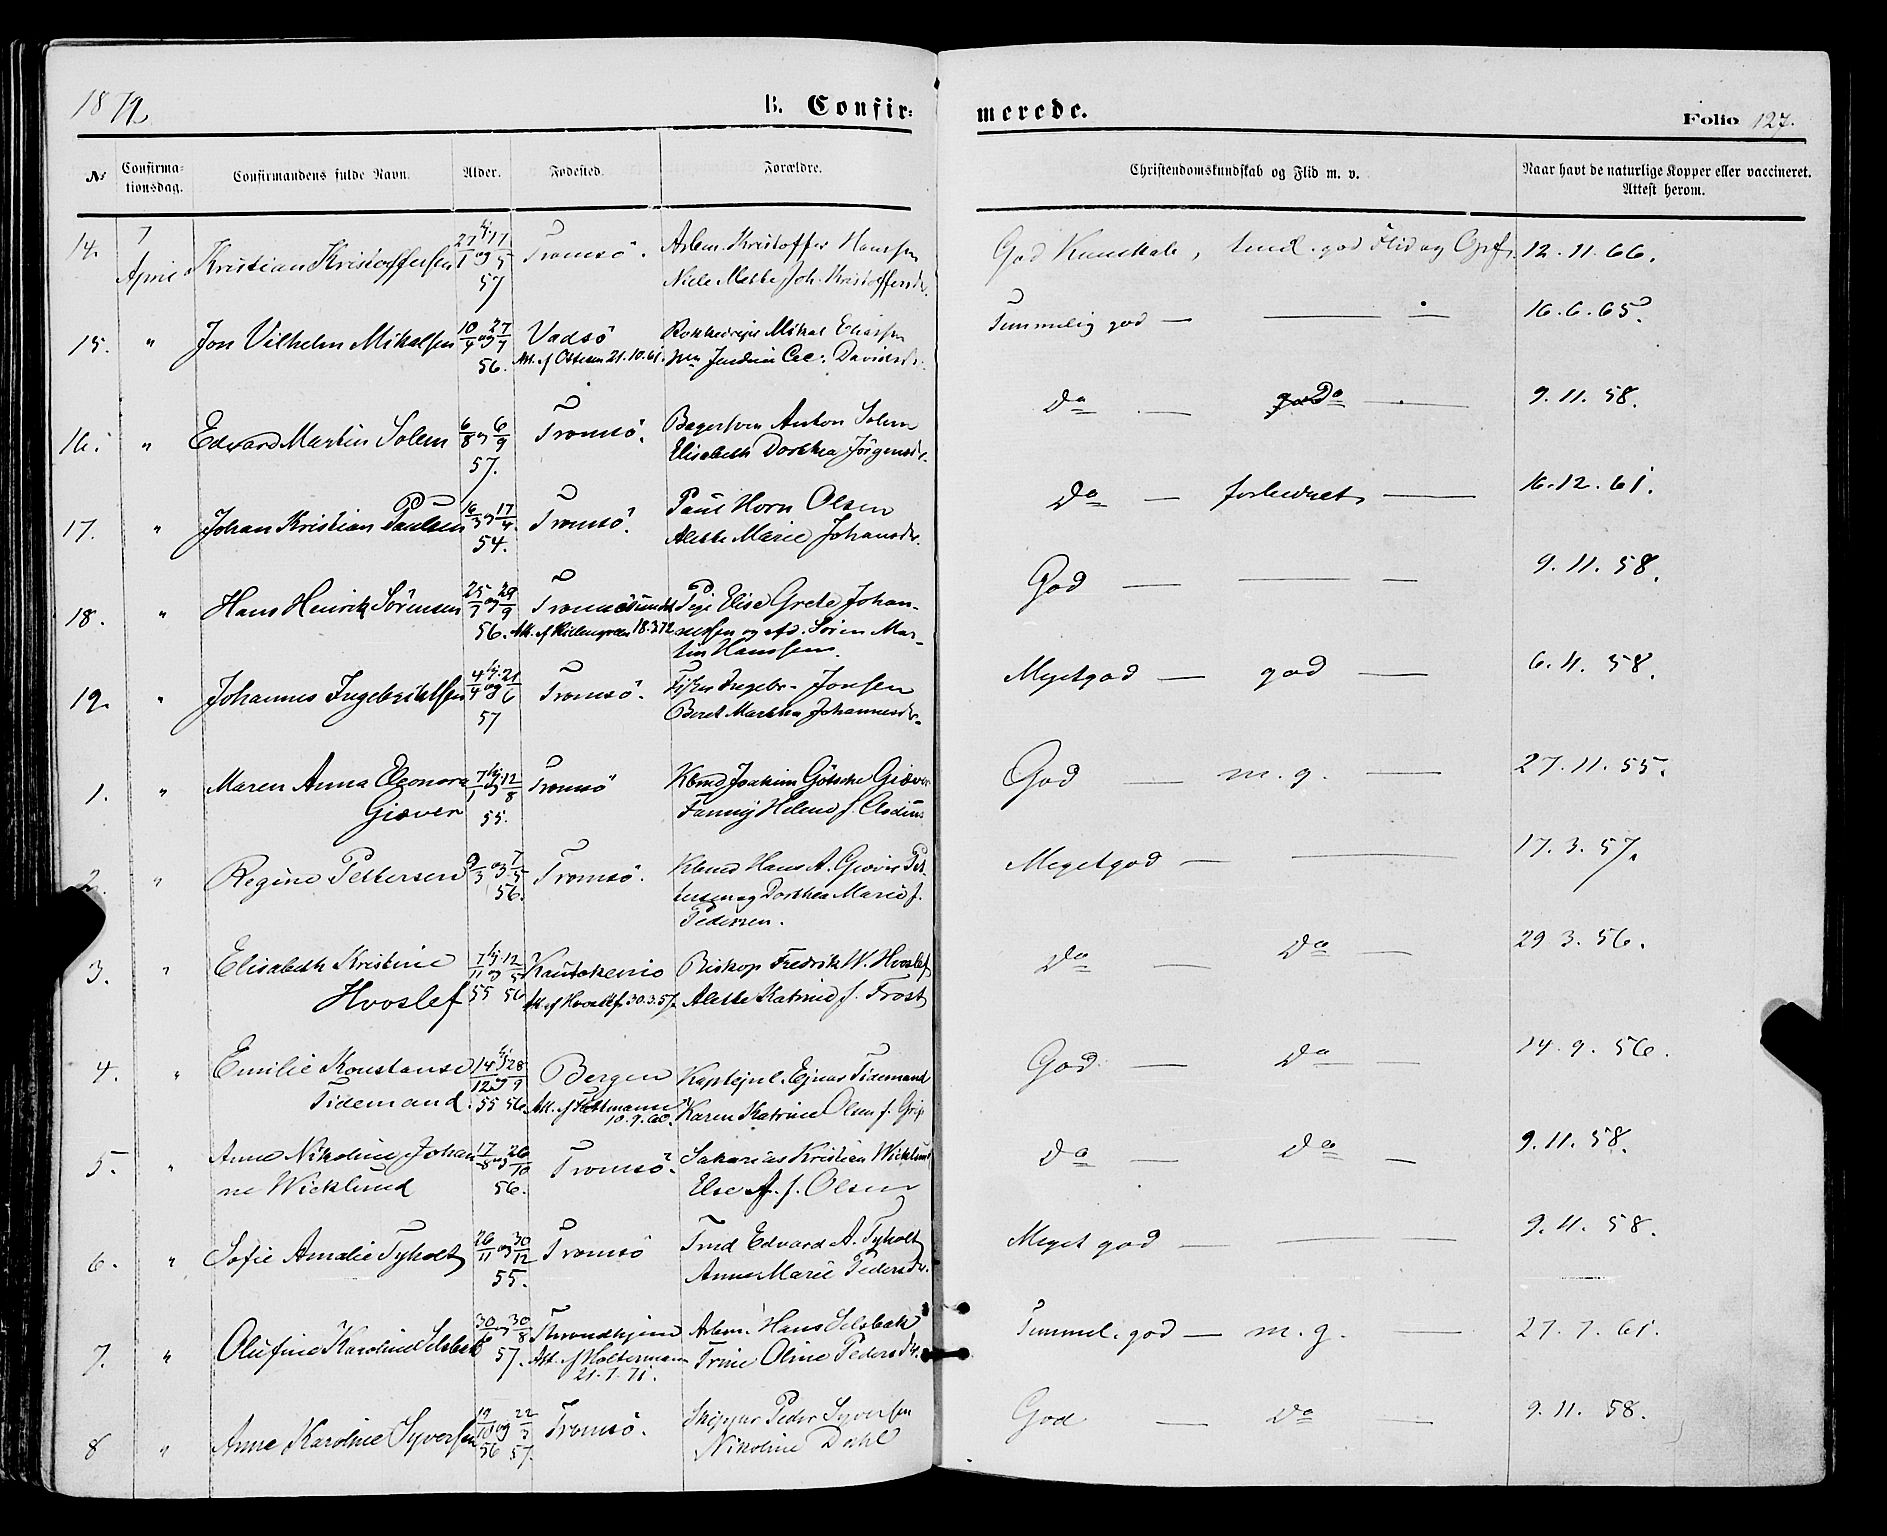 1872
B. Confir-
merede.
Folio 127.
No
Confirma-
tionsdag.
Confirmandens fulde Navn.
Alder.
Fødested.
Forældre.
Christendomskundskab og Flid m. v.
Naar havt de naturlige Kopper eller vaccineret.
Attest herom.
14. 7 April Kristian Kristoffersen 27/1 og 17/5 57 Tromsö. Arbm. Kristoffer Hanssen
Mette Joh. Kristoffersdr.
God Kundskab, god Flid og Opf. 12.11.66.
15. " Jon Vilhelm Mikalsen 10/4 og 27/7 56. Vadsö Mikal Eliassen
Att. f Ottesen 21.10.61. Davidsdr.
Temmelig god — — 16.6.65.
16. " Edvard Martin Solem 6/8 og 6/9 57. Tromsö. Anton Solem
Elisabeth Dorthea Jörgensdr.
Do — Do — 9.11.58.
17. " Johan Kristian Paulsen 16/3 og 17/4 54. Tromsö. Paul Horn Olsen
Alette Marie Johansdr.
Do — — 16.12.61.
18. " Hans Henrik Sörensen 25/7 og 29/9 56. Tromsösundet Pige Elise Grete Johan-
18.3.72 nessen og Sören Mar-
tin Hanssen.
God — — — 9.11.58.
19. " Johannes Ingebriktsen 4/4 og 21/6 57 Tromsö. Fisker Ingebr. Jonsen
Beret Marthea Johannesdr.
Meget god — god — 6.11.58.
1. " Maren Anna Eleonora 7/1 12/8 55. Tromsö Kbmd Joakim Götsche Giæver
Giæver Fanny Helene f. Clodius
God — m. g. — 27.11.55.
2. " Regine Pettersen 9/3 og 7/5 56. Tromsö. Kbmd Hans A. Giæver Pet-
tersen og Dorthea Marie f.
Pedersen.
Meget god — — 17.3.57.
3. " Elisabeth Kristine 7/11 og 12/5 55 56 Kautokeino Biskop Fredrik W. Hvoslef
Hvoslef Att. f Hvoslef 30.3.57. Alette Katrine f. Frost
Do — Do — 29 3.56.
4. " Emilie Konstanse 14/12 og 28/9 55 56. Bergen Kaptejnl. Ejnar Tidemand
Tidemand. 10.9.60. Karen Katrine Olea f. Grip
God — Do — 14.9.56.
5. " Anne Nikoline Johan 17/8 og 26/10 56. Tromsö. Sakarias Kristian Wicklund
ne Wicklund Else A. f. Olsen
Do — Do — 9.11.58.
6. " Sofie Amalie Tyholt 26/11 og 30/12 55. Tromsö Edvard A. Tyholt
Anne Marie Pedersdr.
Meget god — — 9.11.58.
7. " Olufine Karoline Selsbak 30/6 og 30/8 57. Throndhjem Arbm. Hans Selsbak
Att. f Holtermann Trine Oline Pedersdr.
21.7.71.
Temmel. god — m. g. — 27.7.61.
8 " Anne Karoline Syversen 19/10 og 22/3 56 57. Tromsö. Skipper Peder Syversen
Nikoline Dahl
God — Do — 9.11.58.